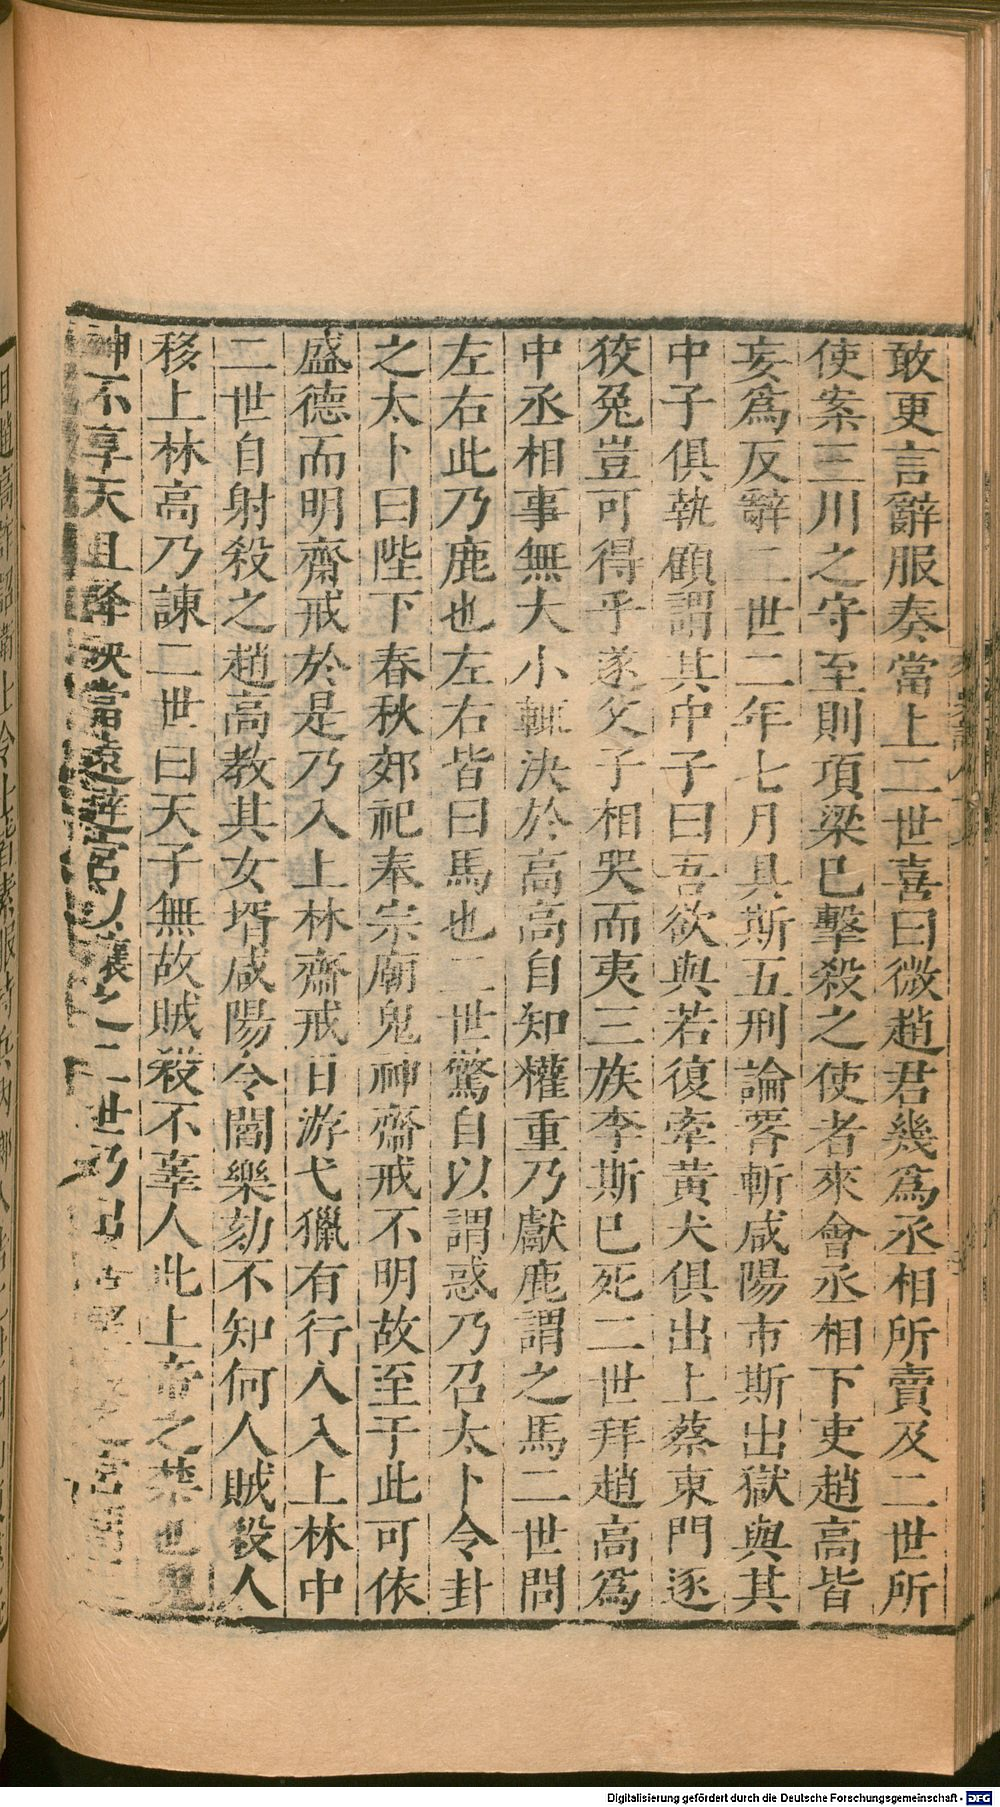 敢更言辭服奏當上二世喜曰微趙君幾爲丞相所賣及二世所
使案三川之守至則項梁已擊殺之使者來會丞相下吏趙高皆
妄爲反辭二世二年七月具斯五刑論咎斬咸陽市斯出獄與其
中子俱執顧謂其中子曰吾欲與若復牽黃犬俱出上蔡東門逐
狡兔豈可得乎遂父子相哭而夷三族李斯已死二世拜趙高爲
中丞相事無大小輒決於高高自知權重乃獻鹿謂之馬二世問
左右此乃鹿也左右皆曰馬也二世驚自以謂惑乃召太卜令卦
之太卜曰陛下春秋郊祀奉宗廟鬼神齋戒不明故至于此可依
盛德而明齋戒於是乃入上林齋戒日游弋獵有行人入上林中
二世自射殺之趙高教其女壻咸陽令閻樂劾不知何人賊殺人
移上林高乃諫二世曰天子無故賊殺不辜人此上帝之禁也鬼
神不享天且降殃當遠避宮以禳之二世乃出 之宮
Digitalisierung gefördert durch die Deutsche Forschungsgemeinschaft - DFG